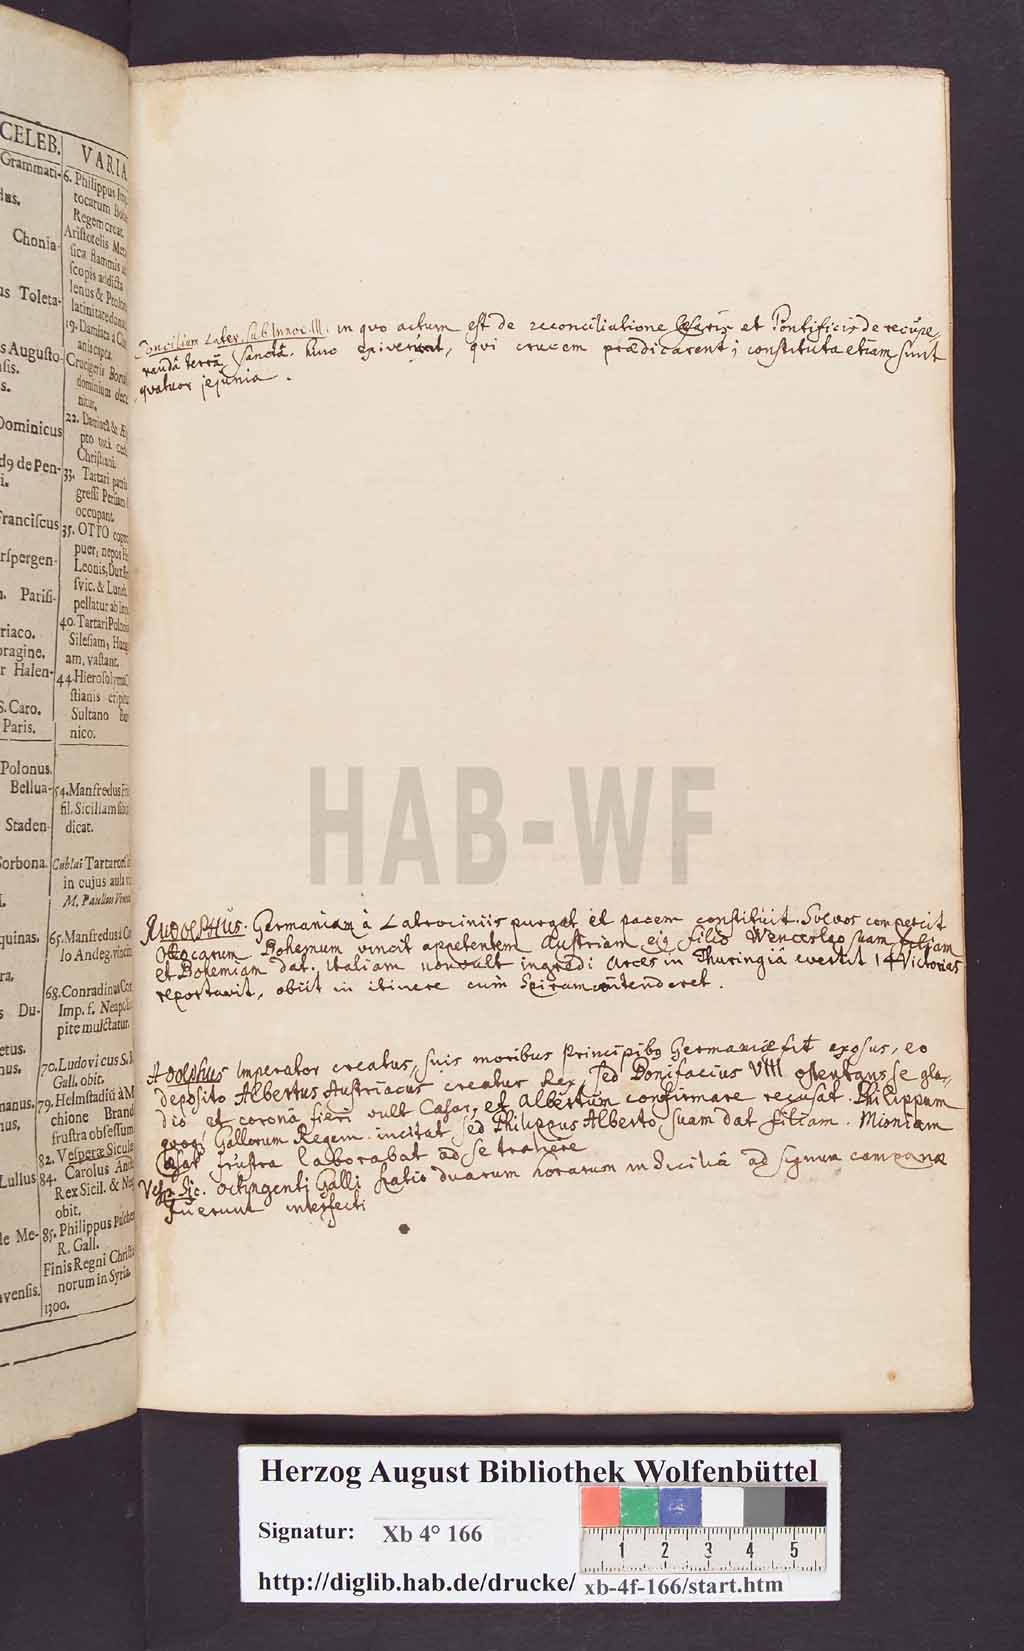 CELEB.
Grammati-
dus.
Chonia-
us Toleta-
s Augusto-
sis.
s.
Dominicus
d9 de Pen-
i.
Franciscus
rspergen-
n. Parisi-
riaco.
oragine.
r Halen-
S. Caro.
Paris.
Polonus.
Bellua-
Staden-
Sorbona.
quinas.
ra.
s Du-
etus.
nus.
manus.
nus,
Lullius
de Me-
avensis.
VARIA
6. Philippus
tocarum
Regem creat.
Aristotelis
sica flammis
scopis addicta
lenus &
latinitate
19. Damiata à
capta.
Crucigeris
dominium
nitur.
22. Damiata &
pto tota
Christiani.
33. Tartari
gressi Persiam
occupant.
35. OTTO
puer, nepos
Leonis, Dux
svic. & Luneb.
pellatur ab
40. Tartari
Silesiam,
am, vastant.
44. Hierosolyma
stianis eripitur
Sultano
nico.
54. Manfredus
fil. Siciliam
dicat.
Cublai Tartarorum
in cujus aula
M. Paulus
65. Manfredus à
lo Andeg. vincitur
68. Conradinus
Imp. f. Neapoli
pite mulctatur.
70. Ludovicus S.
Gall. obit.
79. Helmstadiū à
chione Brand
frustra obsessum
82. Vesperæ Siculæ
84. Carolus
Rex Sicil. &
obit.
85. Philippus Pulcher
R. Gall.
Finis Regni
norum in Syria.
1300.
Concilium Later. sub Innoc. III. in quo actum est de reconciliatione Cæsaris et Pontificis de recupe-
randâ terrâ sanctâ. hinc exiverunt, qui crucem prædicarent; constituta etiam sunt
quatuor jejunia.
RUDOLPHUS. Germaniam à Latrociniis purgat et pacem constituit. Svevos compescit
Ottocarum Bohemum vincit appetentem Austriam, ejq filio Wenceslao suam filiam
et Bohemiam dat. Italiam non vult ingredi arces in Thuringiâ evertit 14 Victorias
reportavit, obiit in itinere cum Spiram intenderet.
ADOLPHUS Imperator creatus, suis moribus Principibq Germaniæ fit exosus, eo
deposito Albertus Austriacus creatur Rex, sed Bonifacius VIII ostentans se gla-
dio et coronâ fieri vult Cæsar, et Albertum confirmare recusat. Philippum
quoq Gallorum Regem incitat sed Philippus Alberto suam dat filiam.
Cæsar frustra laborabat ad se trahere
Vesp. Sic. Octingenti Galli spatio duarum horarum in Siciliâ ad signum campanæ
fuerunt interfecti
HAB-WF
Herzog August Bibliothek Wolfenbüttel
Signatur: Xb 4° 166
1 2 3 4 5
http://diglib.hab.de/drucke/xb-4f-166/start.htm